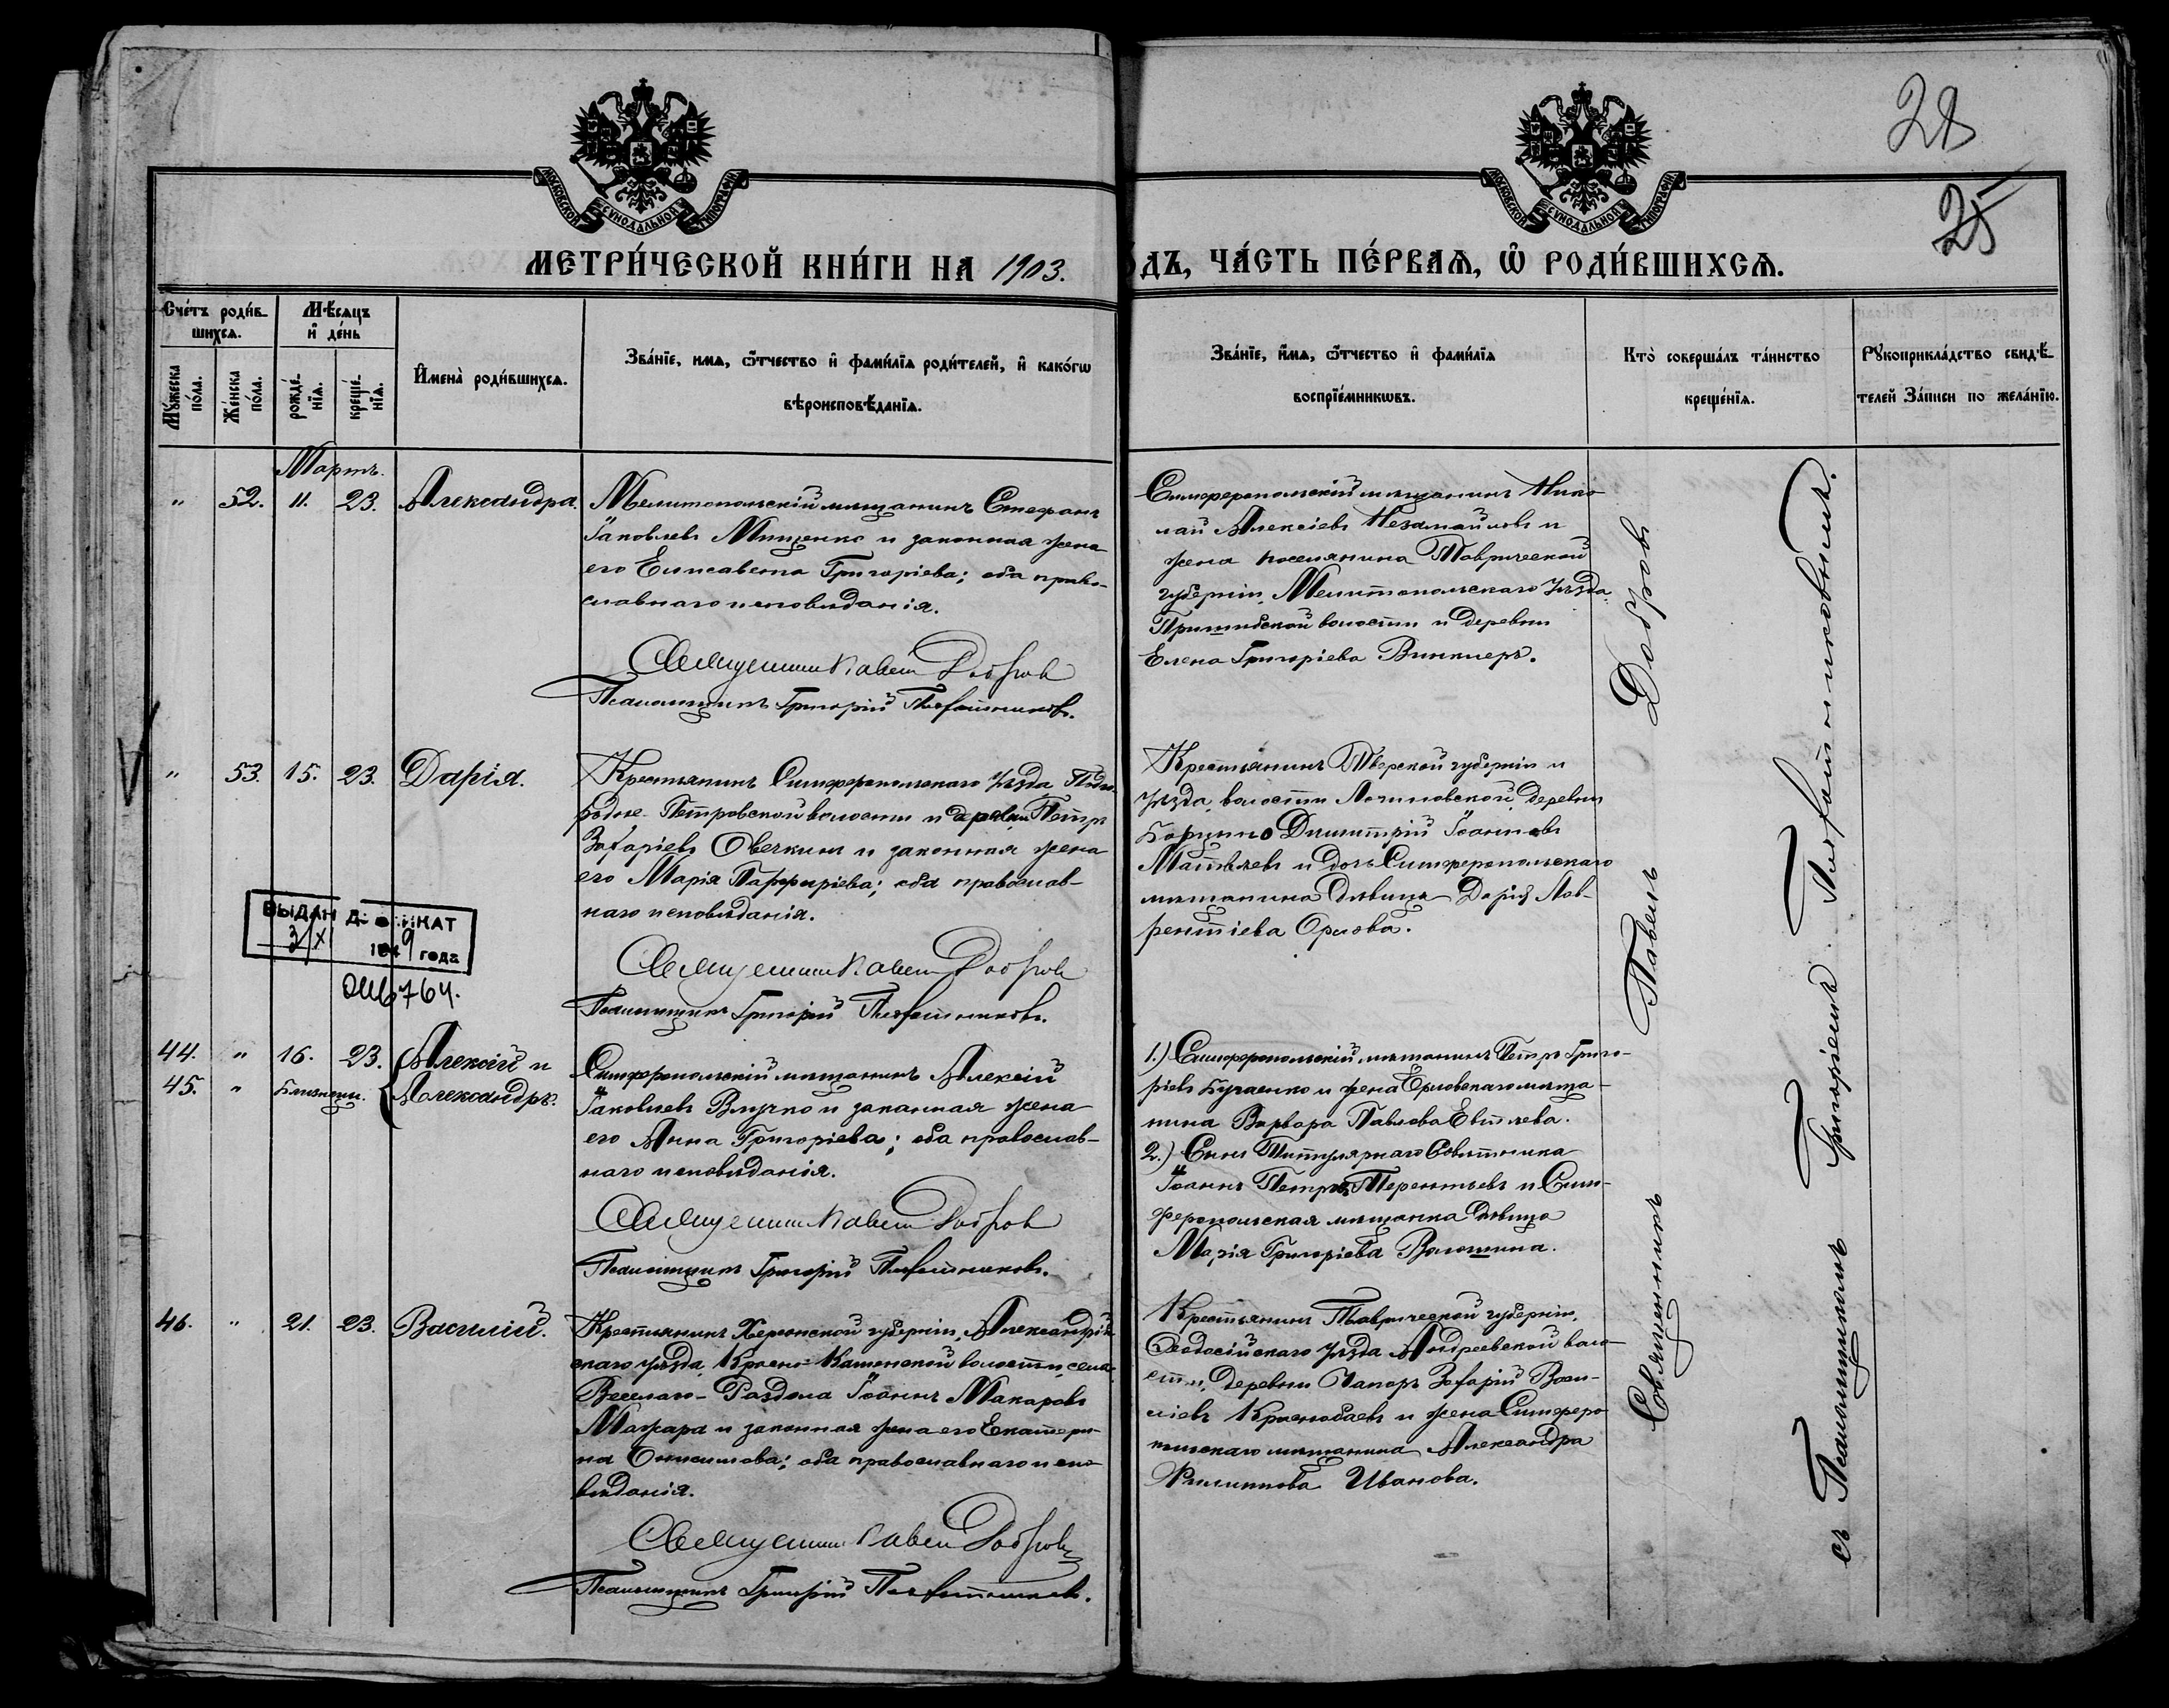 28
25
МОСКОВСКОЙ СУНОДАЛЬНОЙ ТИПОГРАФІИ
МОСКОВСКОЙ СУНОДАЛЬНОЙ ТИПОГРАФІИ
МЕТРИ́ЧЕСКОЙ КНИ́ГИ НА 1903. ОДЪ, ЧА́СТЬ ПЕ́РВАѦ, Ѡ҆ РОДИ́ВШИХСѦ.
Сче́тъ роди́в-
шихсѧ.
Мѣ́сѧцъ
и҆ де́нь
Мꙋ́жеска по́ла.
Же́нска по́ла.
рожде́-
нїѧ.
креще́-
нїѧ.
И҆мена̀ роди́вшихсѧ.
Зва́нїе, имѧ, ѻ҆́тчество и҆ фами́лїѧ роди́телей, и҆ како́гѡ
вѣроисповѣ́данїѧ.
Зва́нїе, и҆́мѧ, ѻ҆́тчество и҆ фами́лїѧ
воспрїе́мникѡвъ.
Кто̀ соверша́лъ та́инство
креще́нїѧ.
Рꙋкоприкла́дство свидѣ́-
телей За́писи по жела́нїю.
Мартъ.
" 52. 11. 23. Александра.
Мелитопольскій мѣщанинъ Стефанъ
Іаковлевъ Мищенко и законная жена
его Елисавета Григоріева; оба право-
славнаго исповѣданія.
Священникъ Павелъ Добровъ
Псаломщикъ Григорій
Симферопольскій мѣщанинъ Нико-
лай Алексіевъ Незамайловъ и
жена поселянина Таврической
губерніи, Мелитопольскаго уѣзда,
Пришибской волости и деревни
Елена Григоріева Винклеръ.
" 53. 15. 23. Дарія.
Крестьянинъ Симферопольскаго уѣзда, Подго-
родне-Петровской волости и деревни Петръ
Захаріевъ Овечкинъ и законная жена
его Марія Парфиріева; оба православ-
наго исповѣданія.
Священникъ Павелъ Добровъ
Псаломщикъ Григорій
Крестьянинъ Тверской губерніи и
уѣзда, волости деревни
Димитрій Іоанновъ
Матвѣевъ и дочь Симферопольскаго
мѣщанина дѣвица Дарія Лав-
рентіева Орлова.
ВЫДАН ДУБЛИКАТ
3/XI 1949 года
046764.
44. " 16. 23. Алексій и
45. " близнецы. Александръ.
Симферопольскій мѣщанинъ Алексій
Іаковлевъ Влучко и законная жена
его Анна Григоріева; оба православ-
наго исповѣданія.
Священникъ Павелъ Добровъ
Псаломщикъ Григорій
1.) Симферопольскій мѣщанинъ Петръ Григо-
ріевъ и жена мѣща-
нина Варвара Павлова
2.) Сынъ Титулярнаго Совѣтника
Іоаннъ Петровъ Терентьевъ и Сим-
феропольская мѣщанка дѣвица
Марія Григоріева Волошина.
46. " 21. 23. Василій.
Крестьянинъ Херсонской губерніи, Александрій-
скаго уѣзда, Красно-Каменской волости, села
Веселаго-Раздола Іоаннъ Макаровъ
Мажара и законная жена его Екатери-
на Онисимова; оба православнаго испо-
вѣданія.
Священникъ Павелъ Добровъ
Псаломщикъ Григорій
Крестьянинъ Таврической губерніи,
Ѳеодосійскаго уѣзда Андреевской воло-
сти, деревни Захарій Васи-
ліевъ и жена Симферо-
польскаго мѣщанина Александра
Филиппова Иванова.
Священникъ Павелъ Добровъ
съ Псаломщикомъ Григоріемъ